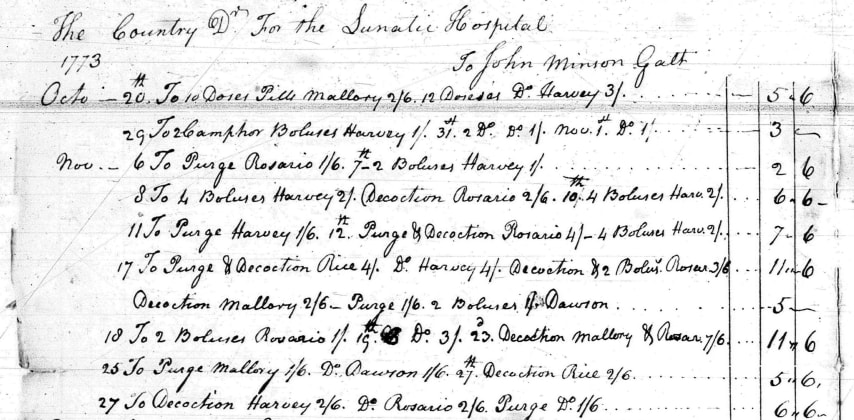 The Country Dr. For the Lunatic Hospital
1773 To John Minson Galt
Octo - 20th. To 10 Doses Pills Mallory 2/6. 12 Doseses Do. Harvey 3/. 5 " 6
29 To 2 Camphor Boluses Harvey 1/. 31st. 2 Do. Do. 1/. Nov. 1st. Do. 1/ 3 -
Nov. - 6 To Purge Rosario 1/6. 7th - 2 Boluses Harvey 1/. 2 6
8 To 4 Boluses Harvey 2/. Decoction Rosario 2/6. 10th. 4 Boluses Harv. 2/. 6 " 6 -
11 To Purge Harvey 1/6. 12th. Purge & Decoction Rosario 4/ - 4 Boluses Harv. 2/. 7 - 6
17 To Purge & Decoction Rice 4/. Do. Harvey 4/. Decoction & 2 Bolus. Rosar. 3/6 11 " 6
Decoction Mallory 2/6 - Purge 1/6. 2 Boluses 1/. Dawson 5 -
18 To 2 Boluses Rosario 1/. 19th. Do. 3/. 23. Decoction Mallory & Rosar. 7/6. 11 " 6
25 To Purge Mallory 1/6. Do. Dawson 1/6. 27th. Decoction Rice 2/6. 5 " 6.
27 To Decoction Harvey 2/6. Do. Rosario 2/6. Purge Do. 1/6 6 " 6 -